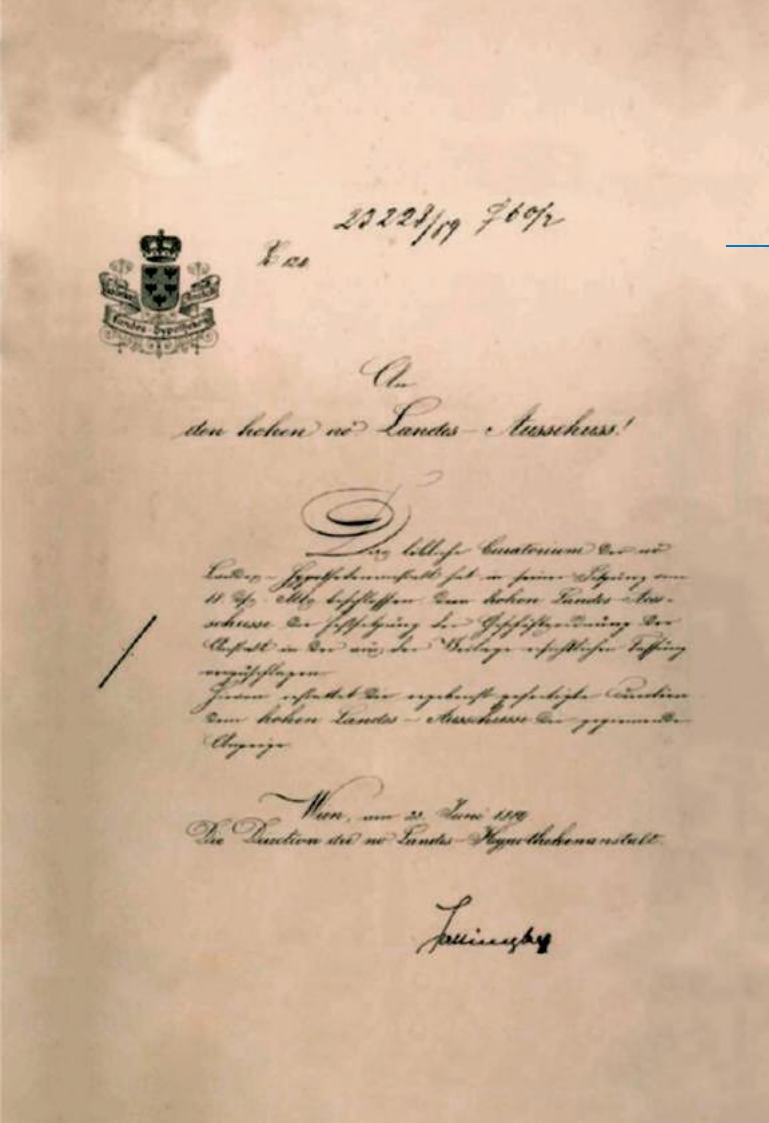 23228/89
Z 120.
Landes-Hypotheken
An
den hohen nö Landes-Ausschuss!
Das löbliche Curatorium der nö
Landes-Hypothekenanstalt hat in seiner Sitzung am
18 ds. Mts beschlossen dem hohen Landes-Aus-
schusse die Festsetzung der Geschäftsordnung der
Anstalt in der aus der Beilage ersichtlichen Fassung
vorzuschlagen.
Hievon erstattet die ergebenst gefertigte Direction
dem hohen Landes-Ausschusse die geziemende
Anzeige.
Wien, am 23. Juni
Die Direction der nö Landes-Hypothekenanstalt.